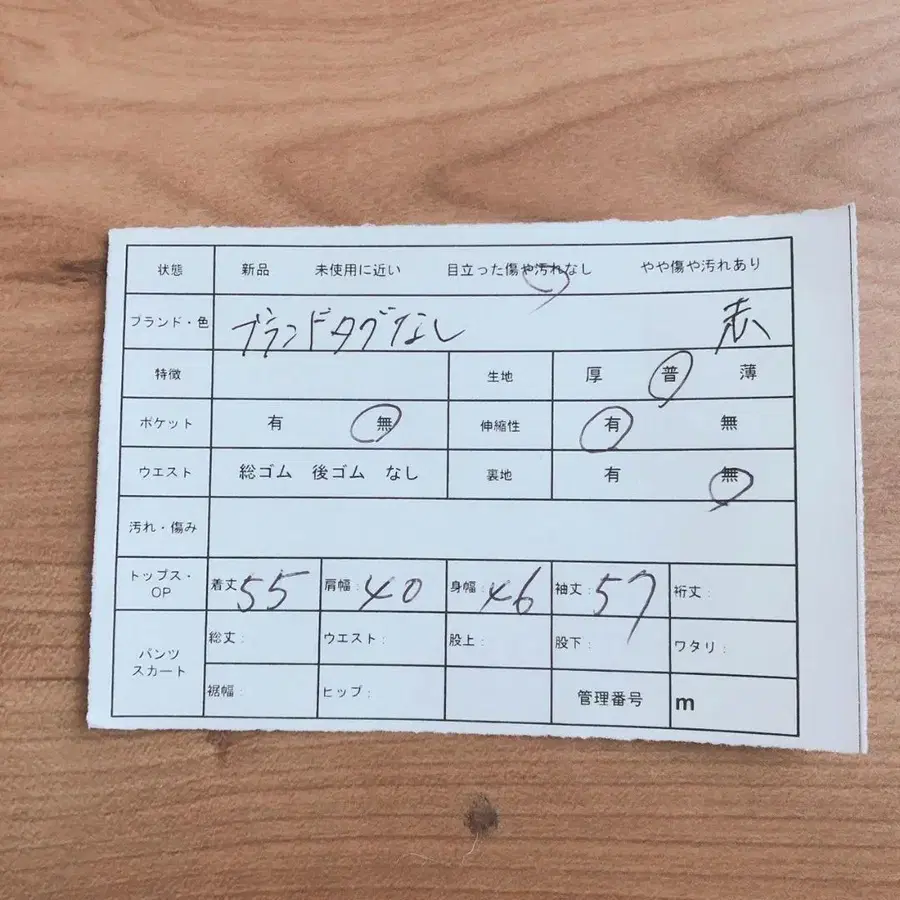 状態 新品 未使用に近い 目立った傷や汚れなし やや傷や汚れあり
ブランド・色 ブランドタグなし 赤
特徴 生地 厚 普 薄
ポケット 有 無 伸縮性 有 無
ウエスト 総ゴム 後ゴム なし 裏地 有 無
汚れ・傷み
トップス・OP 着丈 55 肩幅: 40 身幅: 46 袖丈: 57 裄丈:
パンツ スカート 総丈: ウエスト: 股上: 股下: ワタリ:
裾幅: ヒップ: 管理番号 m